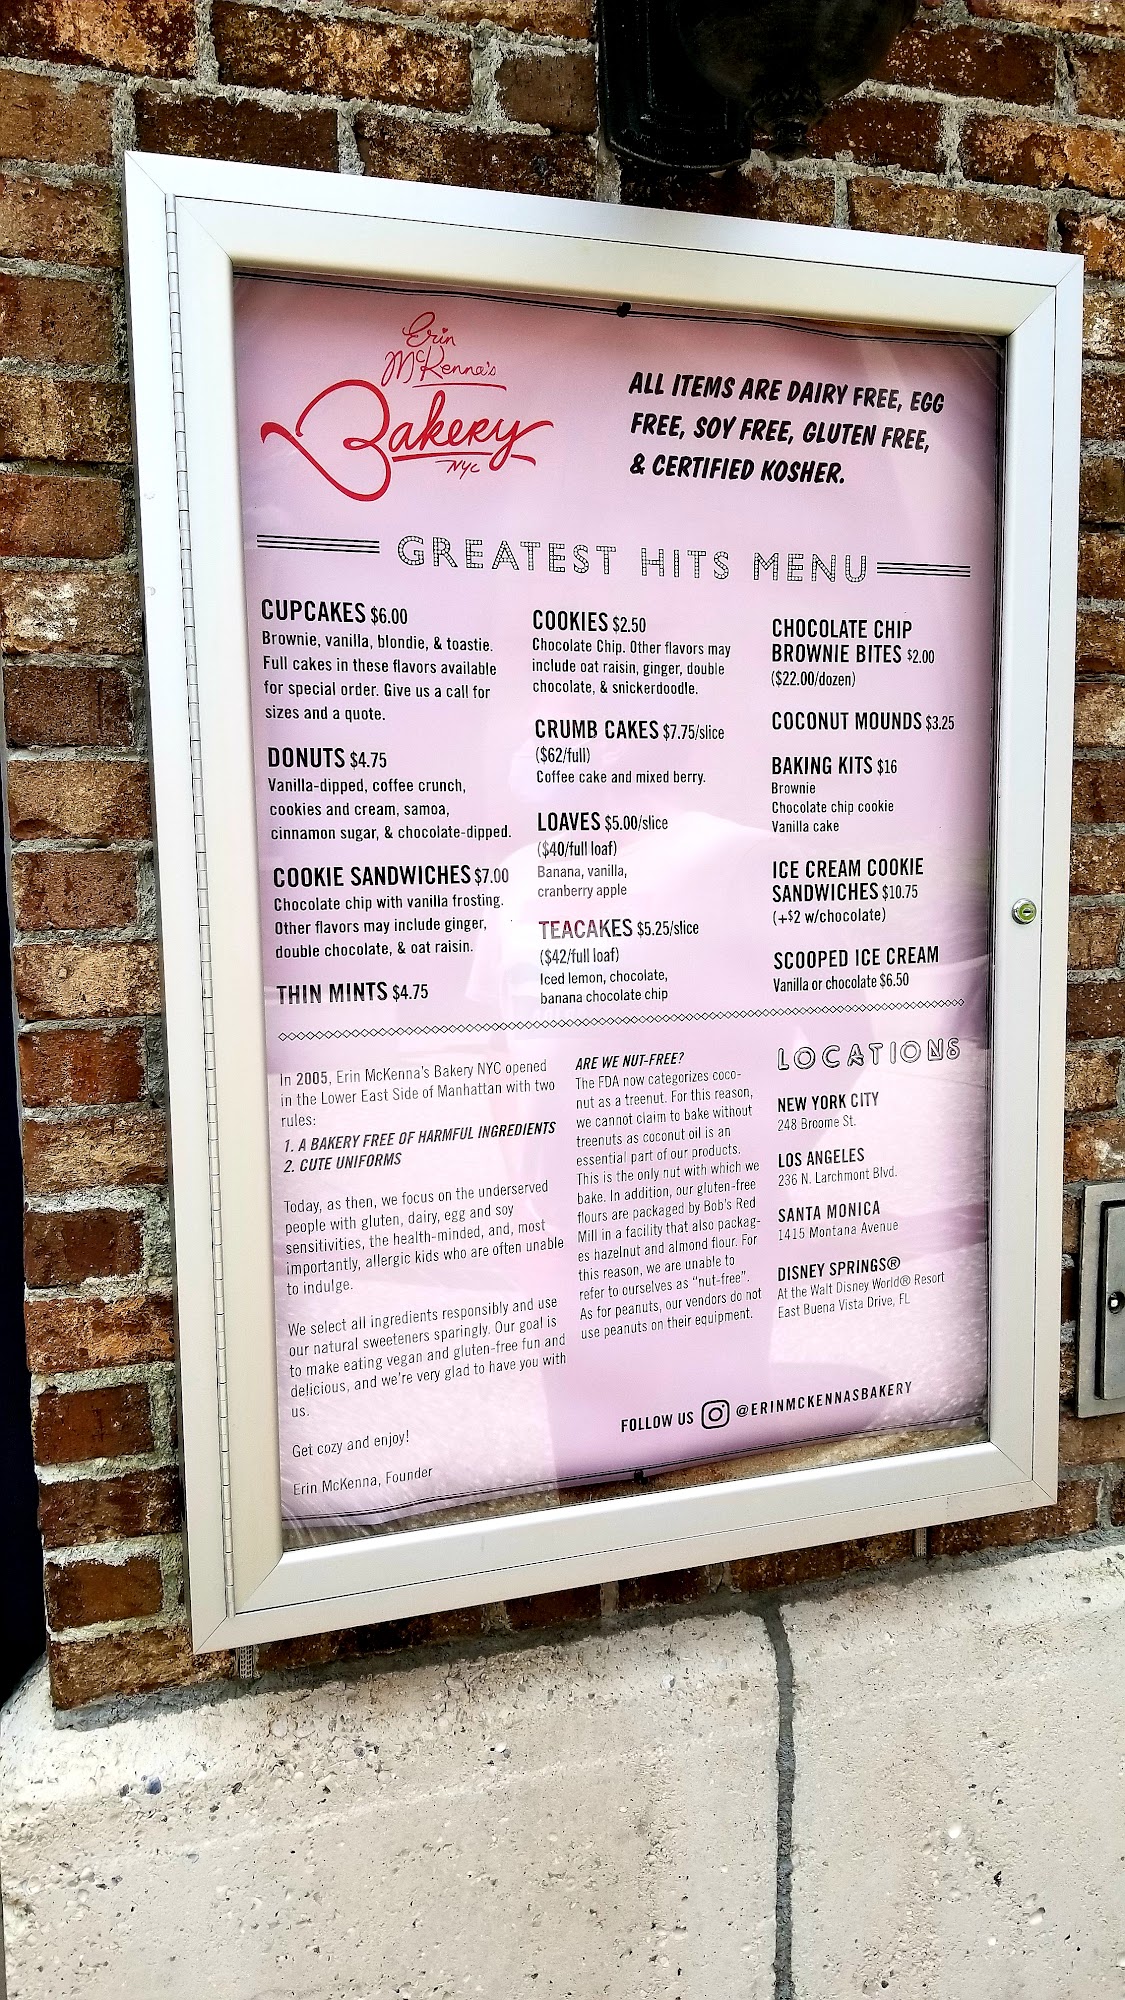 Erin
McKenna's
Bakery
NYC
ALL ITEMS ARE DAIRY FREE, EGG
FREE, SOY FREE, GLUTEN FREE,
& CERTIFIED KOSHER.
GREATEST HITS MENU
CUPCAKES $6.00
Brownie, vanilla, blondie, & toastie.
Full cakes in these flavors available
for special order. Give us a call for
sizes and a quote.
DONUTS $4.75
Vanilla-dipped, coffee crunch,
cookies and cream, samoa,
cinnamon sugar, & chocolate-dipped.
COOKIE SANDWICHES $7.00
Chocolate chip with vanilla frosting.
Other flavors may include ginger,
double chocolate, & oat raisin.
THIN MINTS $4.75
COOKIES $2.50
Chocolate Chip. Other flavors may
include oat raisin, ginger, double
chocolate, & snickerdoodle.
CRUMB CAKES $7.75/slice
($62/full)
Coffee cake and mixed berry.
LOAVES $5.00/slice
($40/full loaf)
Banana, vanilla,
cranberry apple
TEACAKES $5.25/slice
($42/full loaf)
Iced lemon, chocolate,
banana chocolate chip
CHOCOLATE CHIP
BROWNIE BITES $2.00
($22.00/dozen)
COCONUT MOUNDS $3.25
BAKING KITS $16
Brownie
Chocolate chip cookie
Vanilla cake
ICE CREAM COOKIE
SANDWICHES $10.75
(+$2 w/chocolate)
SCOOPED ICE CREAM
Vanilla or chocolate $6.50
In 2005, Erin McKenna's Bakery NYC opened
in the Lower East Side of Manhattan with two
rules:
1. A BAKERY FREE OF HARMFUL INGREDIENTS
2. CUTE UNIFORMS
Today, as then, we focus on the underserved
people with gluten, dairy, egg and soy
sensitivities, the health-minded, and, most
importantly, allergic kids who are often unable
to indulge.
We select all ingredients responsibly and use
our natural sweeteners sparingly. Our goal is
to make eating vegan and gluten-free fun and
delicious, and we're very glad to have you with
us.
Get cozy and enjoy!
Erin McKenna, Founder
ARE WE NUT-FREE?
The FDA now categorizes coco-
nut as a treenut. For this reason,
we cannot claim to bake without
treenuts as coconut oil is an
essential part of our products.
This is the only nut with which we
bake. In addition, our gluten-free
flours are packaged by Bob's Red
Mill in a facility that also packag-
es hazelnut and almond flour. For
this reason, we are unable to
refer to ourselves as "nut-free".
As for peanuts, our vendors do not
use peanuts on their equipment.
LOCATIONS
NEW YORK CITY
248 Broome St.
LOS ANGELES
236 N. Larchmont Blvd.
SANTA MONICA
1415 Montana Avenue
DISNEY SPRINGS®
At the Walt Disney World® Resort
East Buena Vista Drive, FL
FOLLOW US @ERINMCKENNASBAKERY